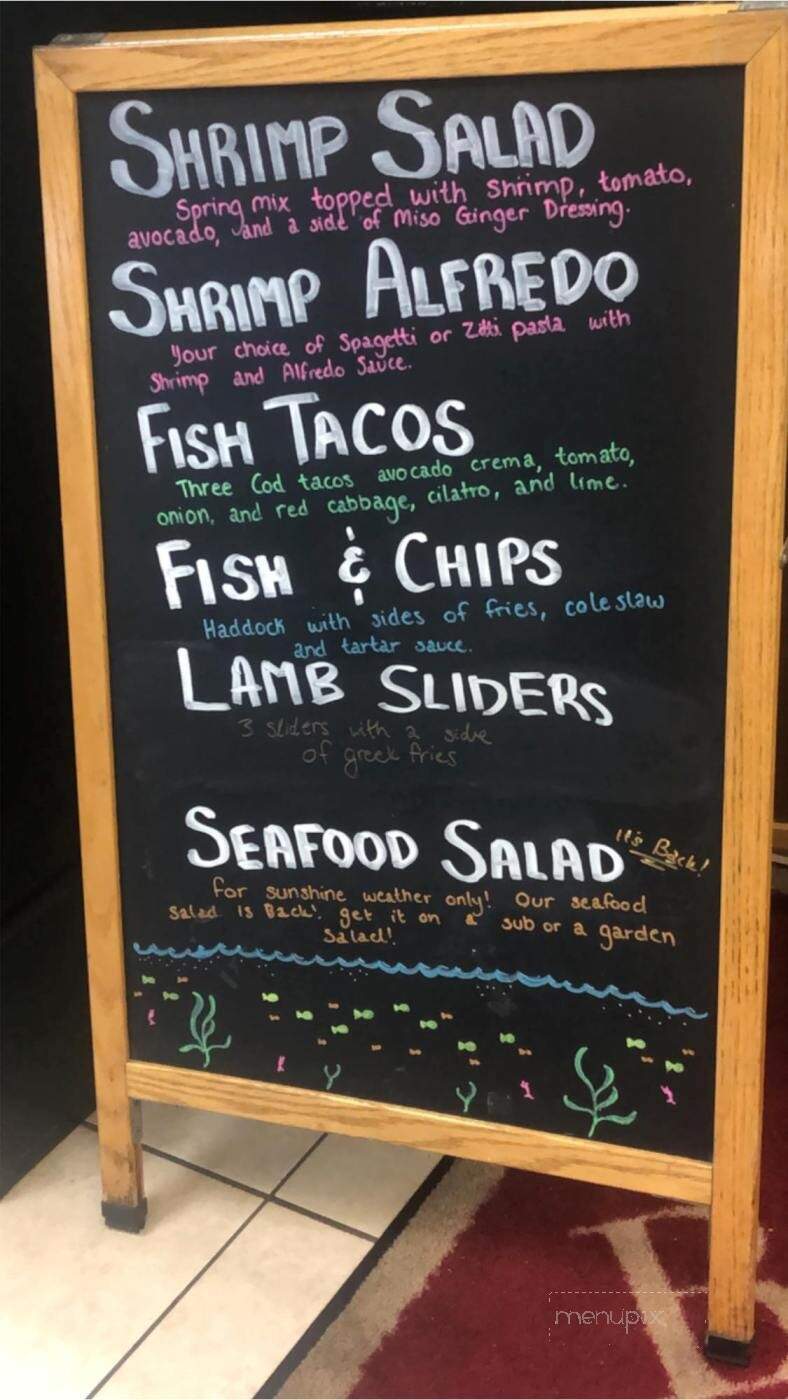 SHRIMP SALAD
Spring mix topped with shrimp, tomato,
avocado, and a side of Miso Ginger Dressing.
SHRIMP ALFREDO
Your choice of Spagetti or Zitti pasta with
Shrimp and Alfredo Sauce.
FISH TACOS
Three Cod tacos avocado crema, tomato,
onion, and red cabbage, cilatro, and lime.
FISH & CHIPS
Haddock with sides of fries, coleslaw
and tartar sauce.
LAMB SLIDERS
3 sliders with a side
of greek fries
SEAFOOD SALAD It's Back!
for sunshine weather only! Our seafood
salad is Back! get it on a sub or a garden
Salad!
menupix